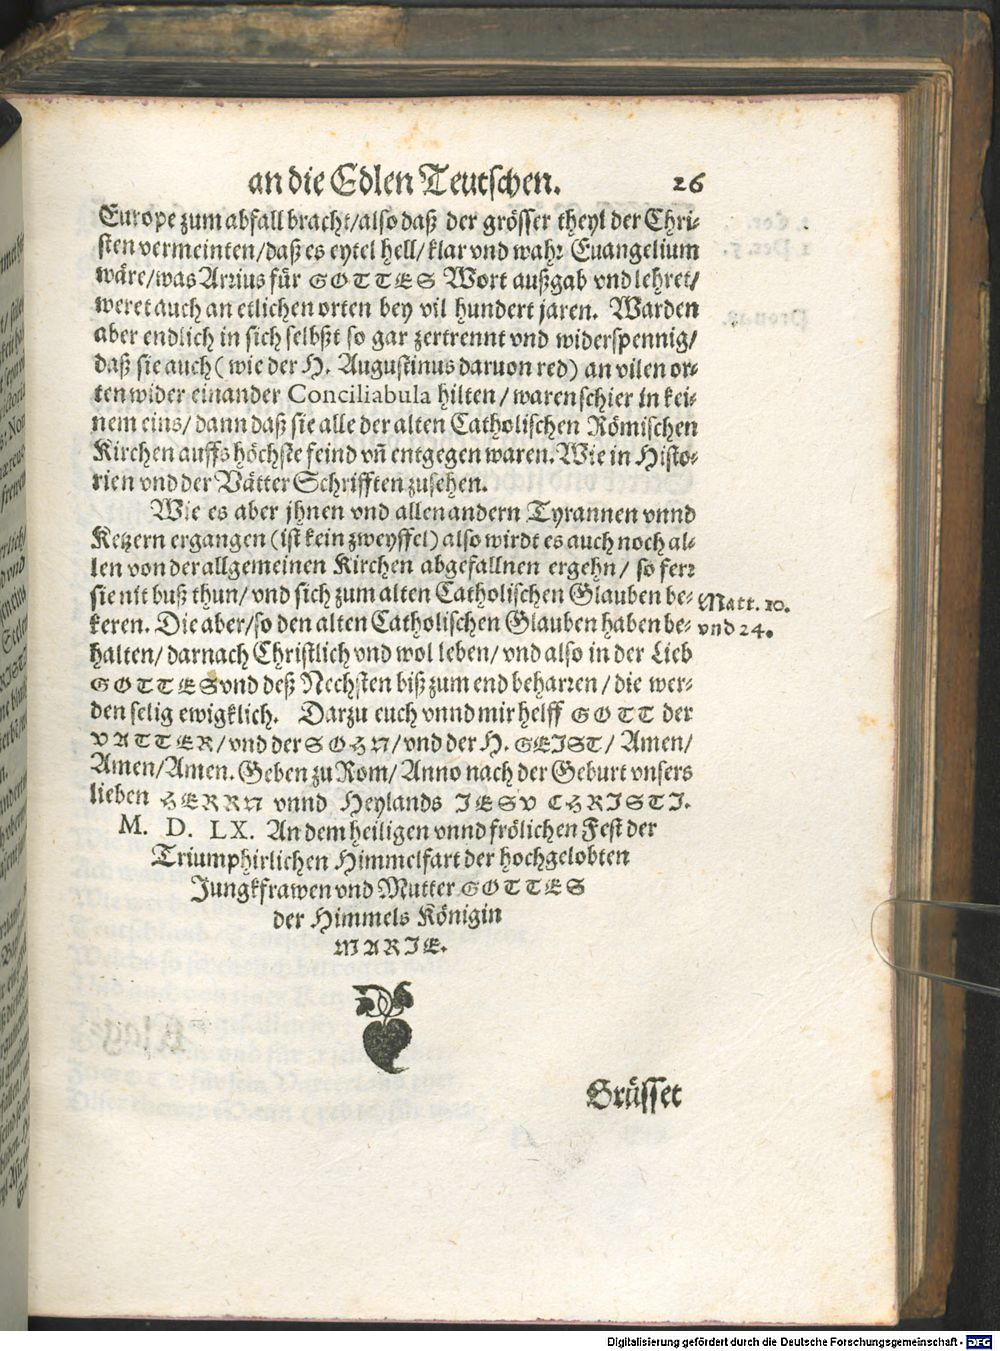 an die Edlen Teutschen. 26
Europe zum abfall bracht/also daß der grösser theyl der Chri-
sten vermeinten/daß es eytel hell/klar vnd wahr Euangelium
wäre/was Arrius für GOTTES Wort außgab vnd lehret/
weret auch an etlichen orten bey vil hundert jaren. Warden
aber endlich in sich selbßt so gar zertrennt vnd widerspennig/
daß sie auch (wie der H. Augustinus daruon red) an vilen or-
ten wider einander Conciliabula hilten/waren schier in kei-
nem eins/dann daß sie alle der alten Catholischen Römischen
Kirchen auffs höchste feind vñ entgegen waren. Wie in Histo-
rien vnd der Vätter Schrifften zusehen.
Wie es aber jhnen vnd allen andern Tyrannen vnnd
Ketzern ergangen (ist kein zweyffel) also wirdt es auch noch al-
len von der allgemeinen Kirchen abgefallnen ergehn/so ferr
sie nit buß thun/vnd sich zum alten Catholischen Glauben be- Matt. 10.
keren. Die aber/so den alten Catholischen Glauben haben be- vnd 24.
halten/darnach Christlich vnd wol leben/vnd also in der Lieb
GOTTES vnd deß Nechsten biß zum end beharren/die wer-
den selig ewigklich. Darzu euch vnnd mir helff GOTT der
VATTER/vnd der SOHN/vnd der H. GEIST/Amen/
Amen/Amen. Geben zu Rom/Anno nach der Geburt vnsers
lieben HERRN vnnd Heylands JESV CHRISTI.
M. D. LX. An dem heiligen vnnd frölichen Fest der
Triumphirlichen Himmelfart der hochgelobten
Jungkfrawen vnd Mutter GOTTES
der Himmels Königin
MARIE.
Grüsset
Digitalisierung gefördert durch die Deutsche Forschungsgemeinschaft - DFG